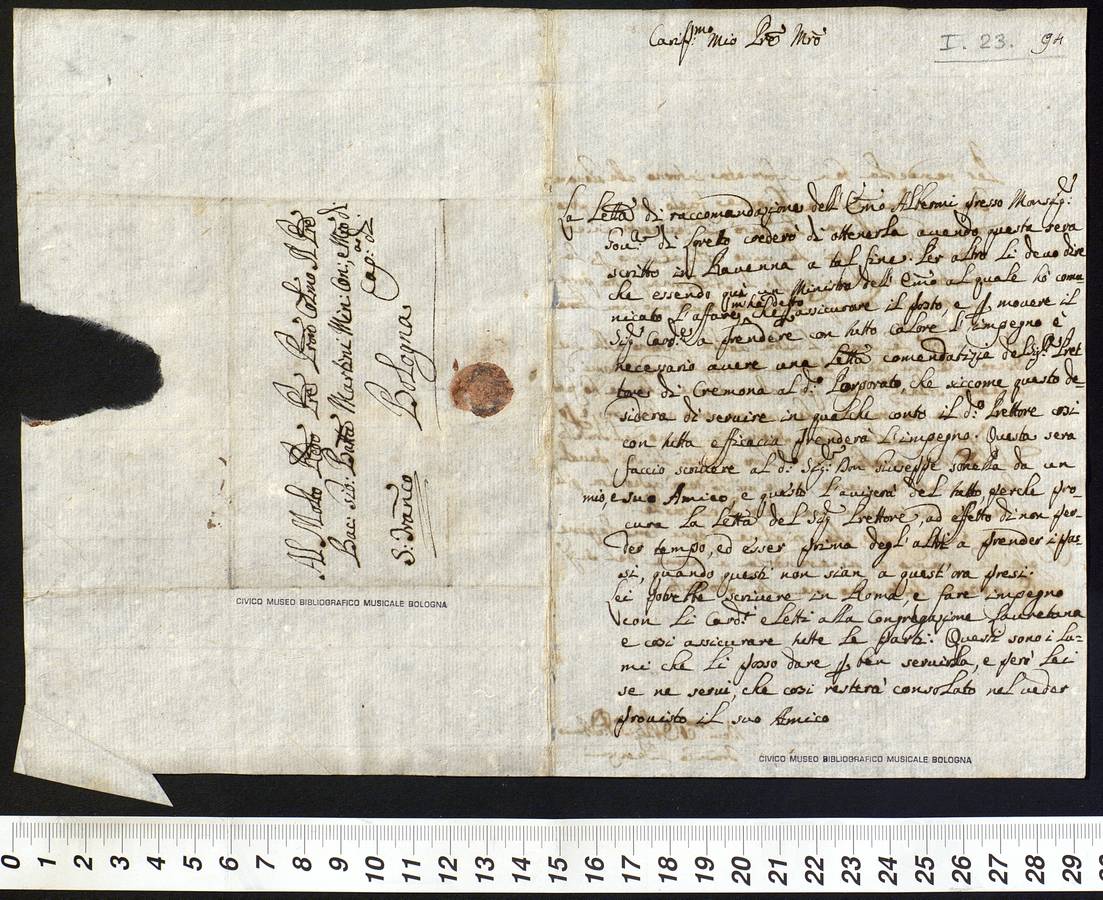 Cariss.mo Mio Pre Mro
I. 23. 94
La Letta di raccomandazione dell'Emo Alberoni presso Monsig.
Gov.e di Loreto crederò di ottenerla avendo questa sera
scritto in Ravenna a tal fine. Per altro Li devo dire
che essendo quì un Ministro dell'Emo al quale hò comu-
nicato l'affare, mi hà detto che p assicurare il posto, e p movere il
Sig. Card.e a prendere con tutto calore l'impegno è
necessario avere una Letta comendatizia del Sig. Pret
tore di Cremona al d.o Porporato, che siccome questo de-
sidera di servire in qualche conto il d.o Prettore così
con tutta efficacia prenderà l'impegno. Questa sera
faccio scrivere al d.o Sig. Don Giuseppe da un
mio, e suo Amico, e questo l'aviserà del tutto, perche pro-
cura la Letta del Sig. Prettore, ad effetto di non per-
der tempo, ed esser prima degl'altri a prender i pas-
si, quando questi non sian a quest'ora presi.
Lei potrebbe scrivere in Roma, e fare impegno
con li Card.i eletti alla Congregazione Lauretana
e così assicurare tutte le parti. Questi sono i lu-
mi che li posso dare p ben servirla, e però Lei
se ne servi, che così resterà consolato nel veder
provisto il suo Amico
Al Molto Rndo Pre Pron Colmo Il Pre
Gio: Batta Martini Min: Con:, e Mro di
Cap: di
Bologna
S: Franco
CIVICO MUSEO BIBLIOGRAFICO MUSICALE BOLOGNA
CIVICO MUSEO BIBLIOGRAFICO MUSICALE BOLOGNA
0 1 2 3 4 5 6 7 8 9 10 11 12 13 14 15 16 17 18 19 20 21 22 23 24 25 26 27 28 29